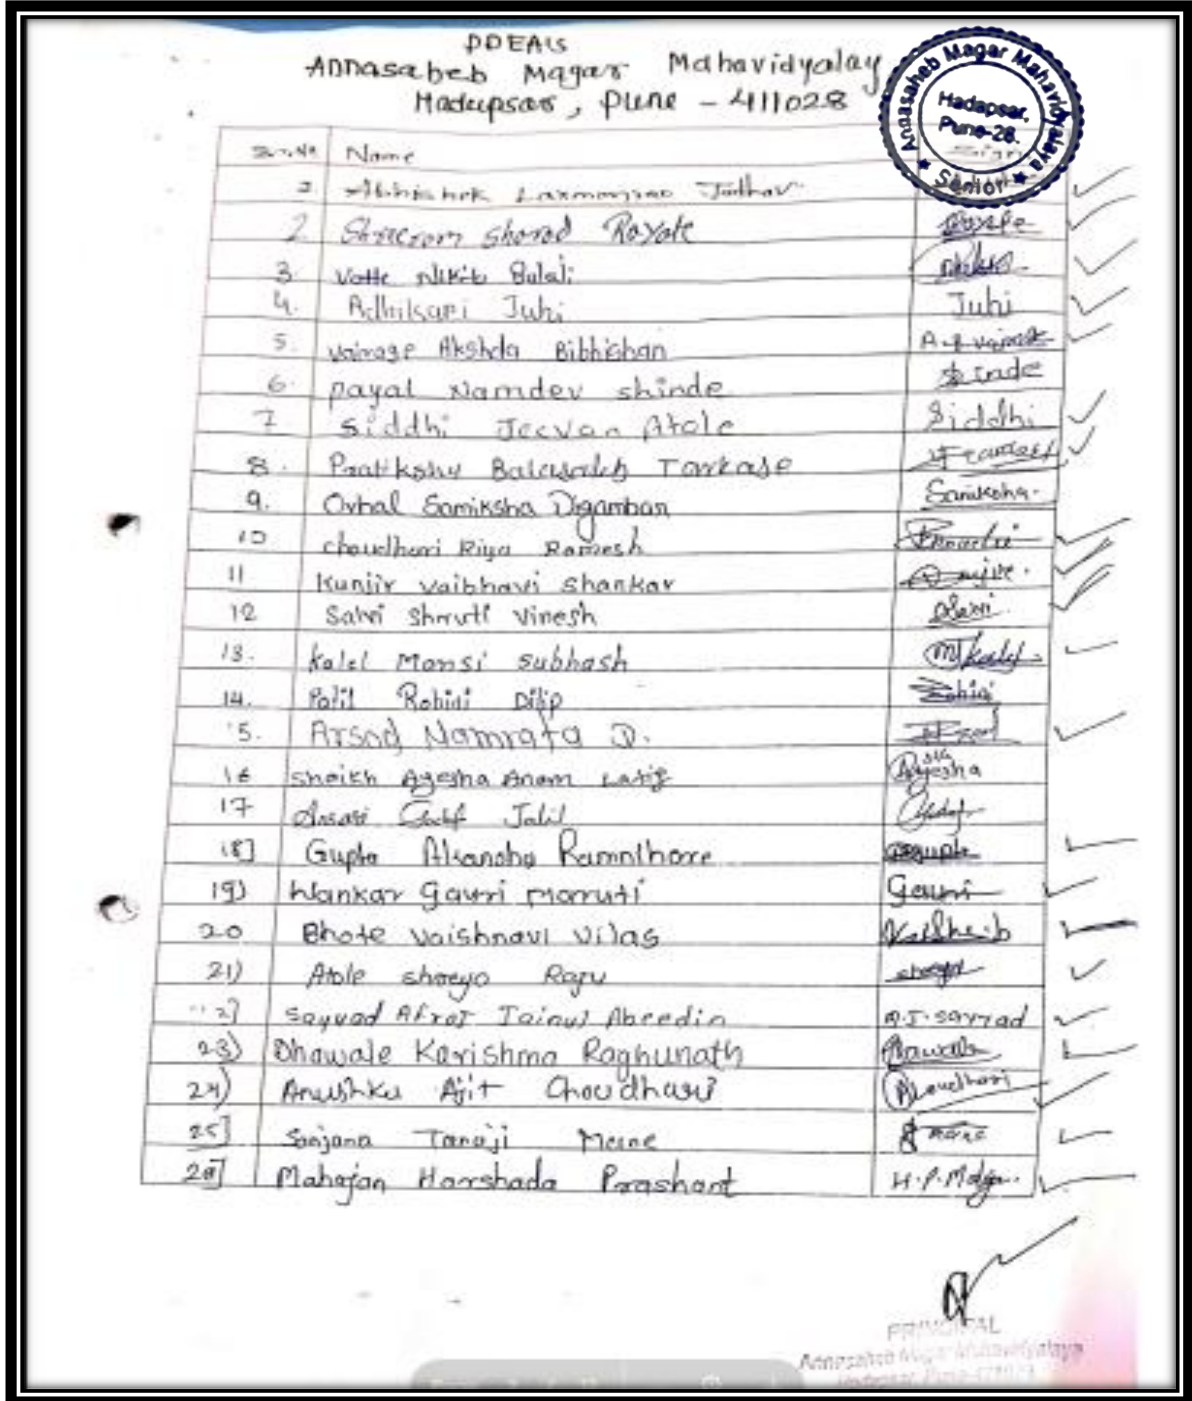 PDEA'S
Annasaheb Magar Mahavidyalay
Hadapsar, Pune - 411028
Annasaheb Magar Mahavidyalaya
Hadapsar,
Pune-28.
Senior
Sr.No Name Sign
1. Abhishek Laxmanrao Jadhav
2. Shreeram Sharad Rayate Rayate
3. Vatte Nikita
4. Adhikari Juhi Juhi
5. Vairage Akshda Bibhishan
6. payal Namdev shinde Shinde
7 Siddhi Jeevan Atole Siddhi
8. Pratiksha Balasaheb Tarkase
9. Ovhal Samiksha Digambar Samiksha.
10 choudhari Riya Ramesh
11 Kunjir vaibhavi Shankar
12 Salvi Shruti Vinesh Salvi
13. Kalel Mansi subhash M Kalel
14. Patil Rohini Dilip Rohini
15. Arsod Namrata D.
16 Shaikh Ayesha Anam Latif Ayesha
17 Ansari Jalil
18] Gupta Akansha Gupta
19) Wankar Gauri Maruti Gauri
20 Bhote vaishnavi vilas
21) Atole shreya Raju shreya
2] Sayyad Afroj Jainul Abeedin A.J. Sayyad
23) Dhawale Karishma Raghunath Dhawale
24) Anushka Ajit Choudhari Choudhari
25] Sanjana Tanaji Mane Mane
26] Mahajan Harshada Prashant H.P.
PRINCIPAL
Annasaheb Magar Mahavidyalaya
Hadapsar, Pune-411028